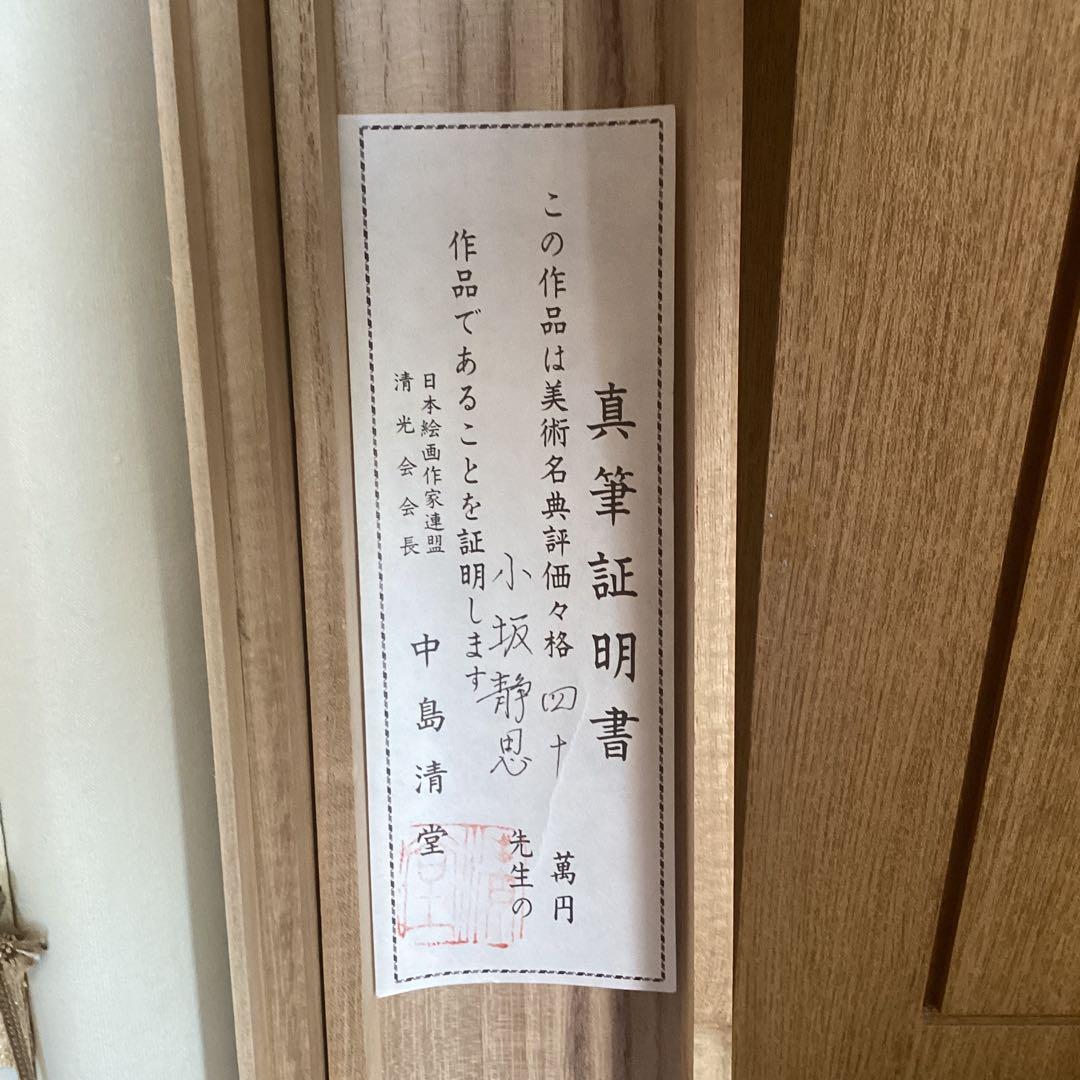 真筆証明書
この作品は美術名典評価々格四十萬円
小坂静思先生の
作品であることを証明します
日本絵画作家連盟
清光会会長
中島清堂